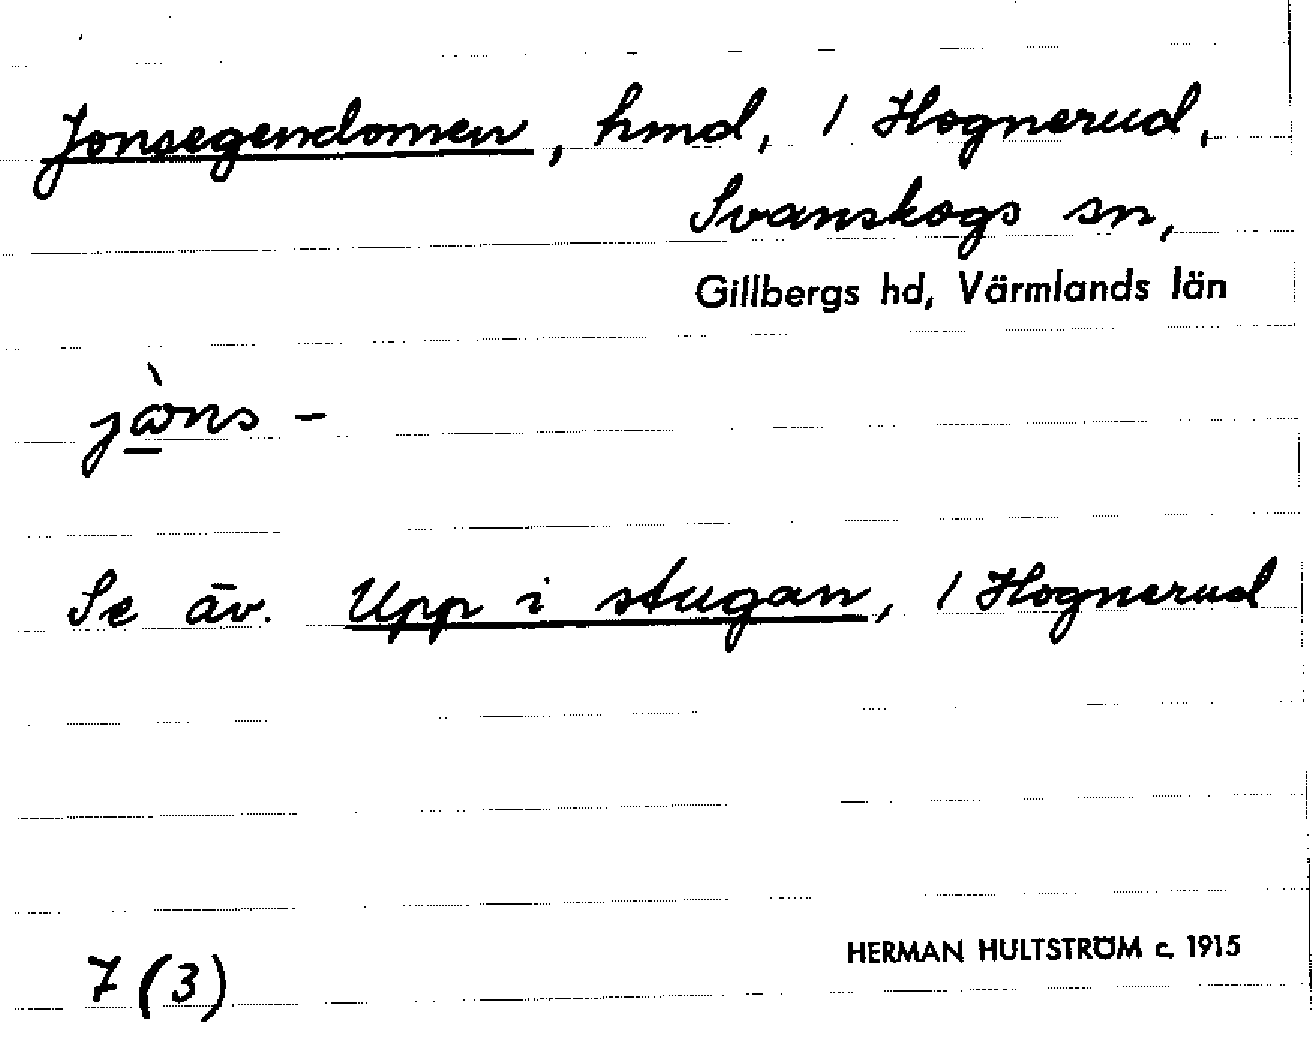 Jonsegendomen, hmd, / Hognerud,
Svanskogs sn,
Gillbergs hd, Värmlands län
jòns -
Se äv. Upp i stugan, / Hognerud
HERMAN HULTSTRÖM c. 1915
7 (3)